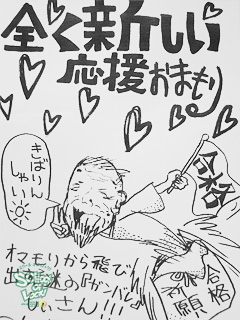 全く新しい
応援おまもり
きばりん
しゃい
合格
オマモリから飛び
出す謎の『ガンバレ
じいさん』!!!
合格
祈願